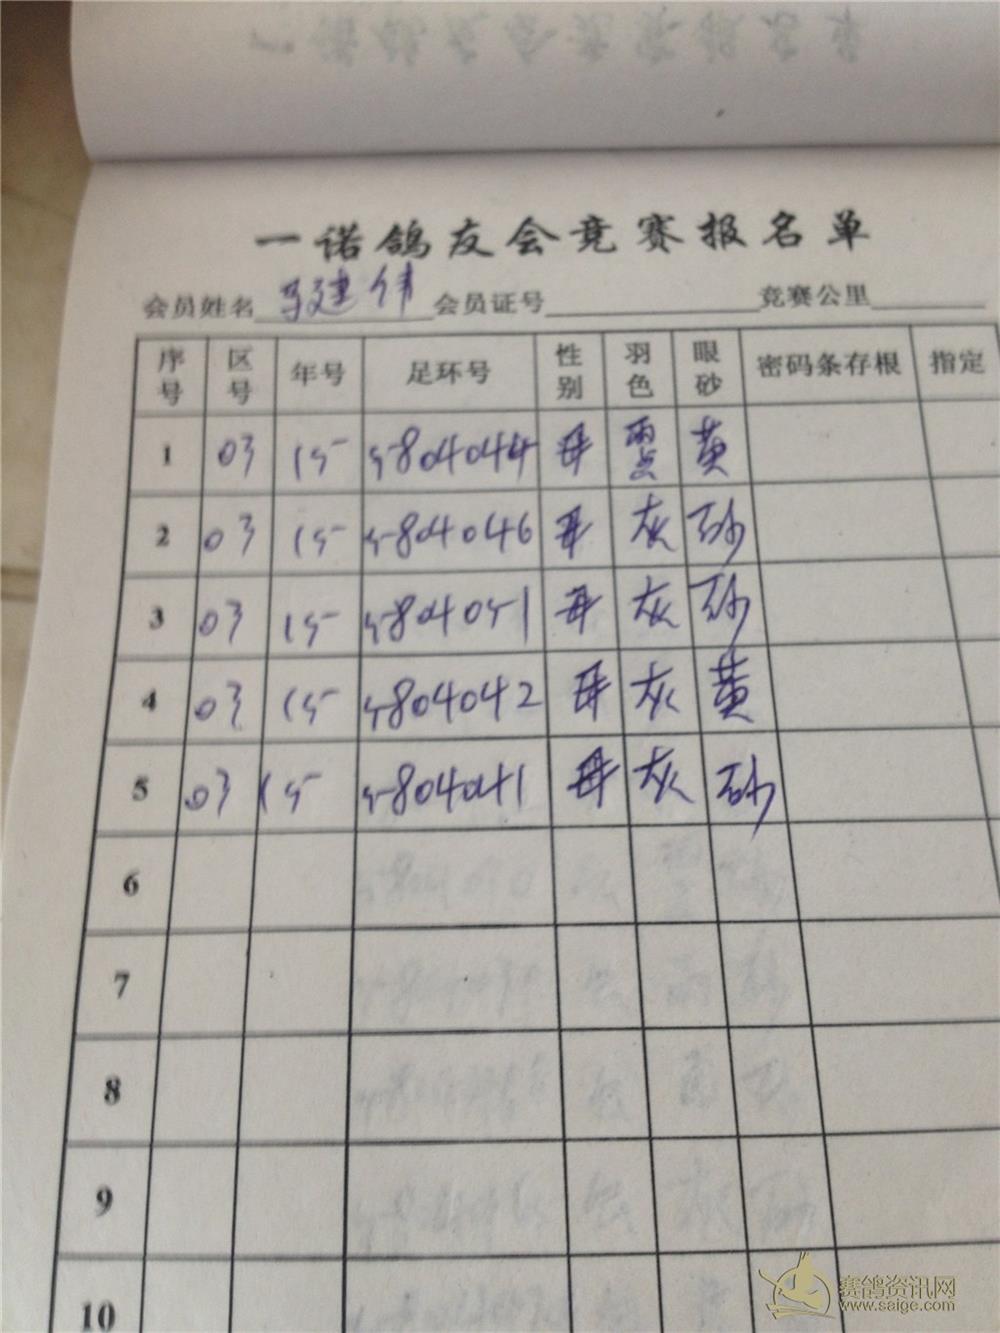 一诺鸽友会竞赛报名单
会员姓名 马建伟 会员证号 竞赛公里
序号 区号 年号 足环号 性别 羽色 眼砂 密码条存根 指定
1 03 15 5804044 母 雨点 黄
2 03 15 5804046 母 灰 砂
3 03 15 5804051 母 灰 砂
4 03 15 5804042 母 灰 黄
5 03 15 5804041 母 灰 砂
6
7
8
9
10
赛鸽资讯网
www.saige.com